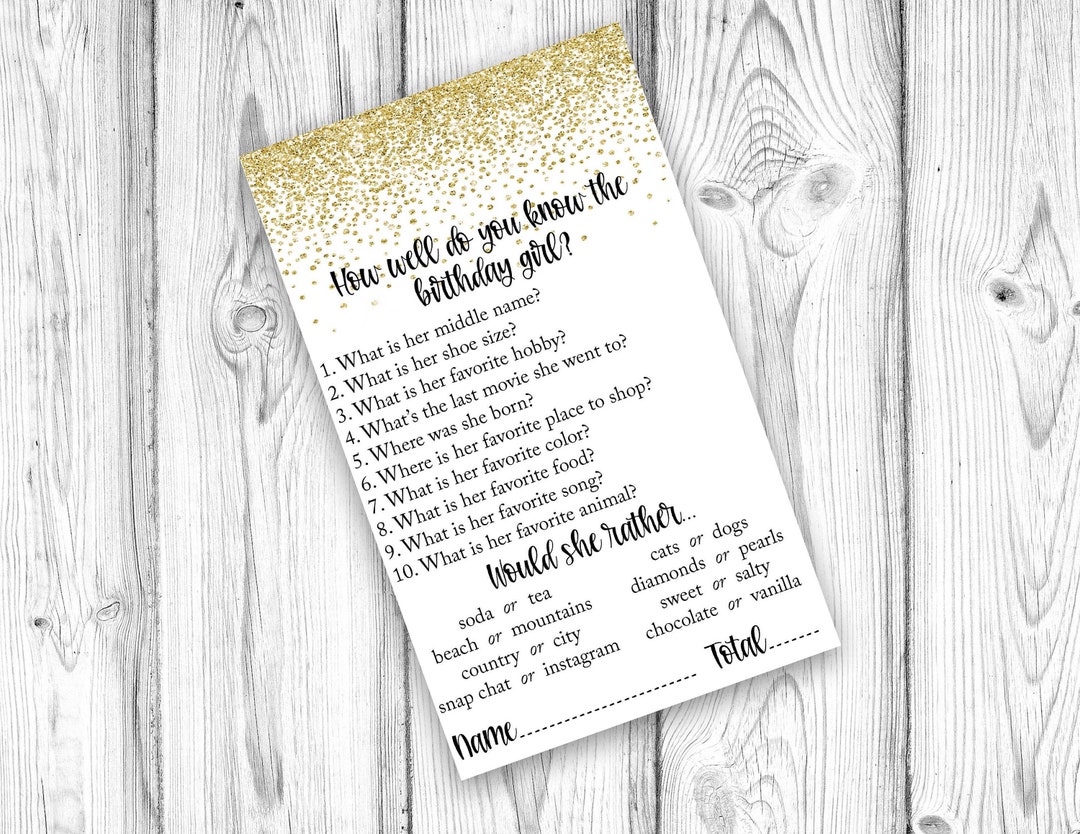 How well do you know the
birthday girl?
1. What is her middle name?
2. What is her shoe size?
3. What is her favorite hobby?
4. What's the last movie she went to?
5. Where was she born?
6. Where is her favorite place to shop?
7. What is her favorite color?
8. What is her favorite food?
9. What is her favorite song?
10. What is her favorite animal?
Would she rather...
soda or tea
beach or mountains
country or city
snap chat or instagram
cats or dogs
diamonds or pearls
sweet or salty
chocolate or vanilla
Name
Total